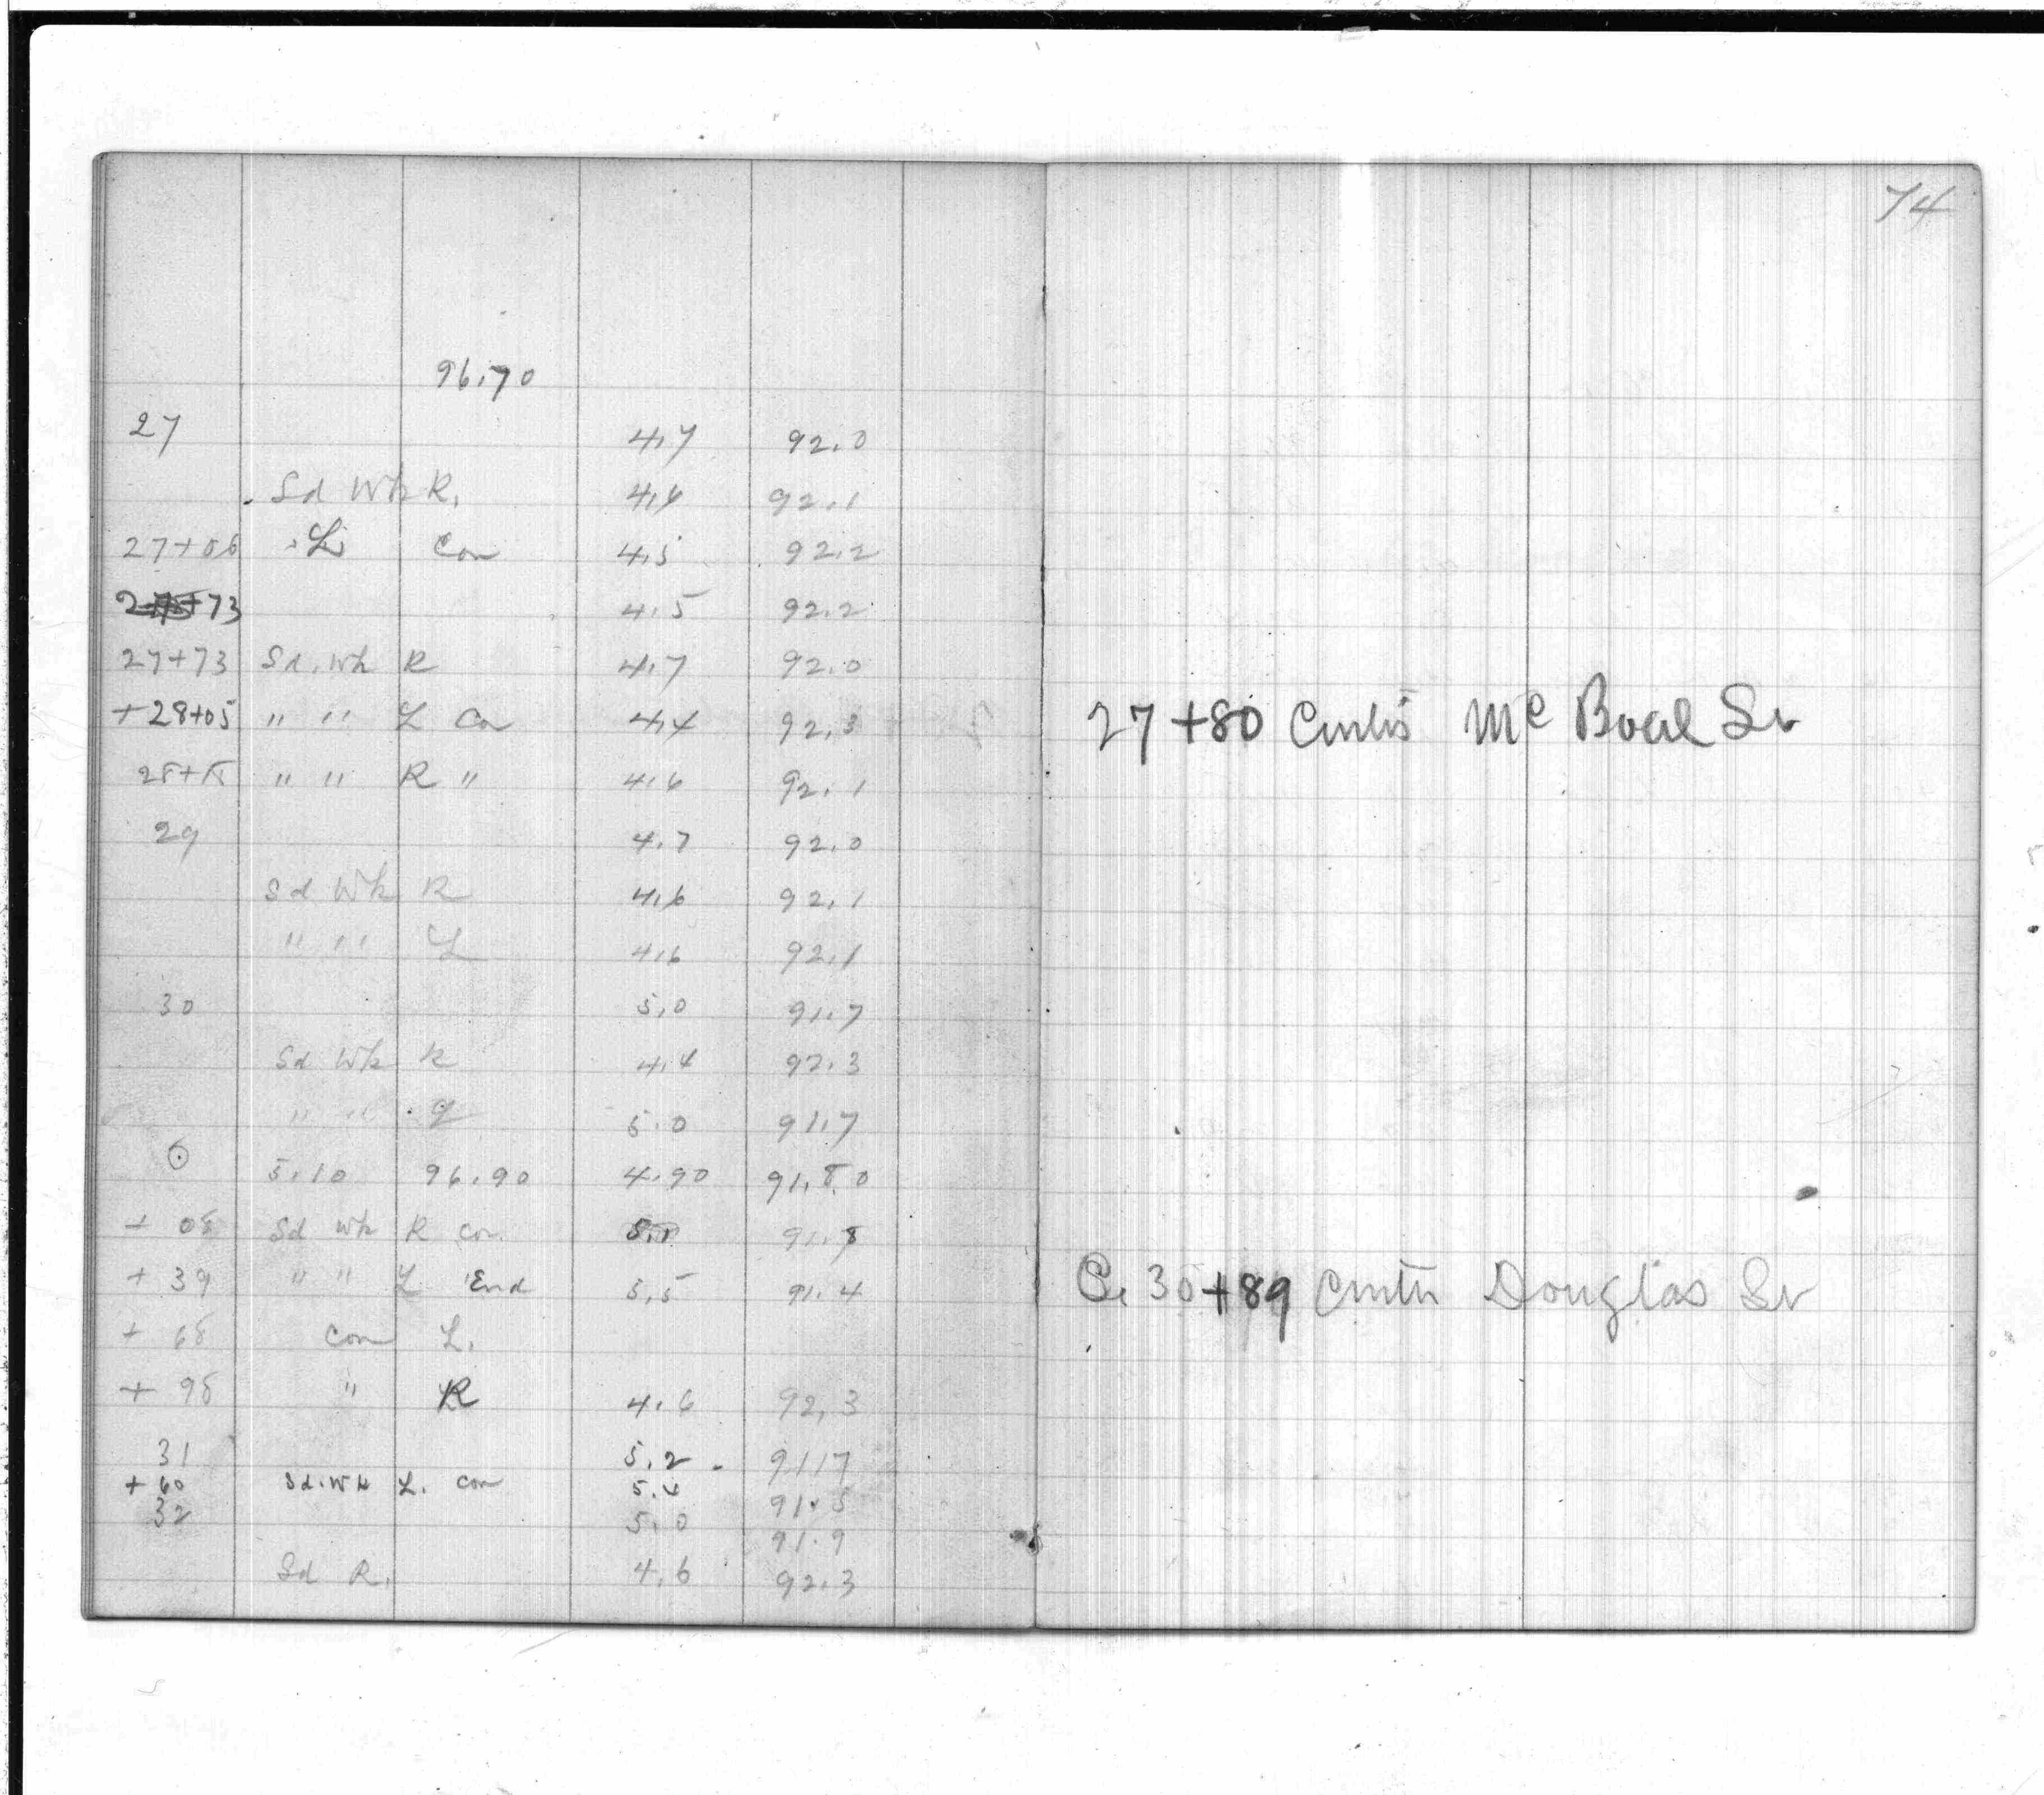 74
96.70
27 4.7 92.0
Sd Wk R. 4.6 92.1
27+06 L Con 4.5 92.2
27+73 4.5 92.2
27+73 Sd. Wk R 4.7 92.0
+28+05 " " L Con 4.4 92.3
27+80 McBoal St
" " R " 4.6 92.1
29 4.7 92.0
Sd Wk R 4.6 92.1
" " L 4.6 92.1
30 5.0 91.7
Sd Wk R 4.4 92.3
" " L 5.0 91.7
⊙ 5.10 96.90 4.90 91.80
+ 08 Sd Wk R Con. 91.8
+ 39 " " L End 5.5 91.4
30+89 Douglas St
+ 68 Con L.
+ 98 " R 4.6 92.3
31 5.2 91.7
+ 60 Sd. Wk L. Con 5.4 91.5
32 5.0 91.9
Sd R. 4.6 92.3